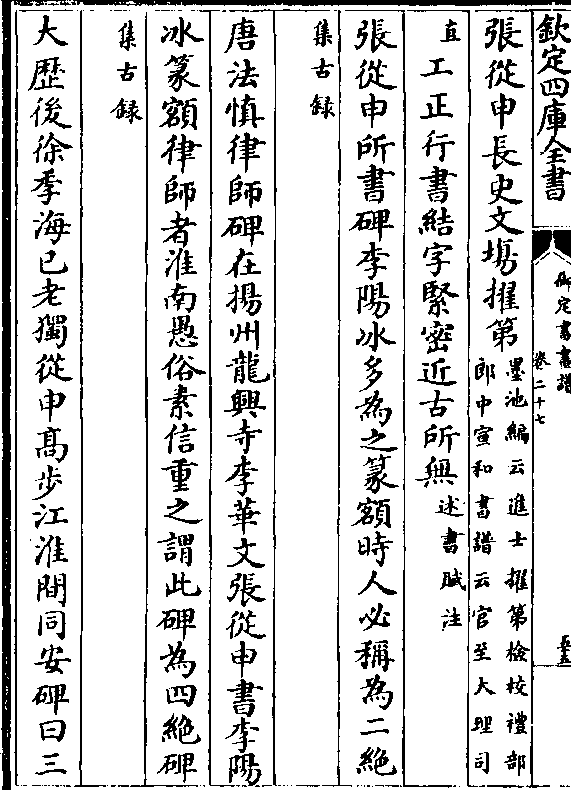 欽定四庫全書
御定書畫譜
卷二十七
五五
張從申長史文塲擢第
墨池編云進士擢第檢校禮部
郎中宣和書譜云官至大理司
直
工正行書結字緊密近古所無
述書賦注
張從申所書碑李陽冰多為之篆額時人必稱為二絶
集古録
唐法慎律師碑在揚州龍興寺李華文張從申書李陽
冰篆額律師者淮南愚俗素信重之謂此碑為四絶碑
集古録
大歴後徐季海已老獨從申髙步江淮間同安碑曰三